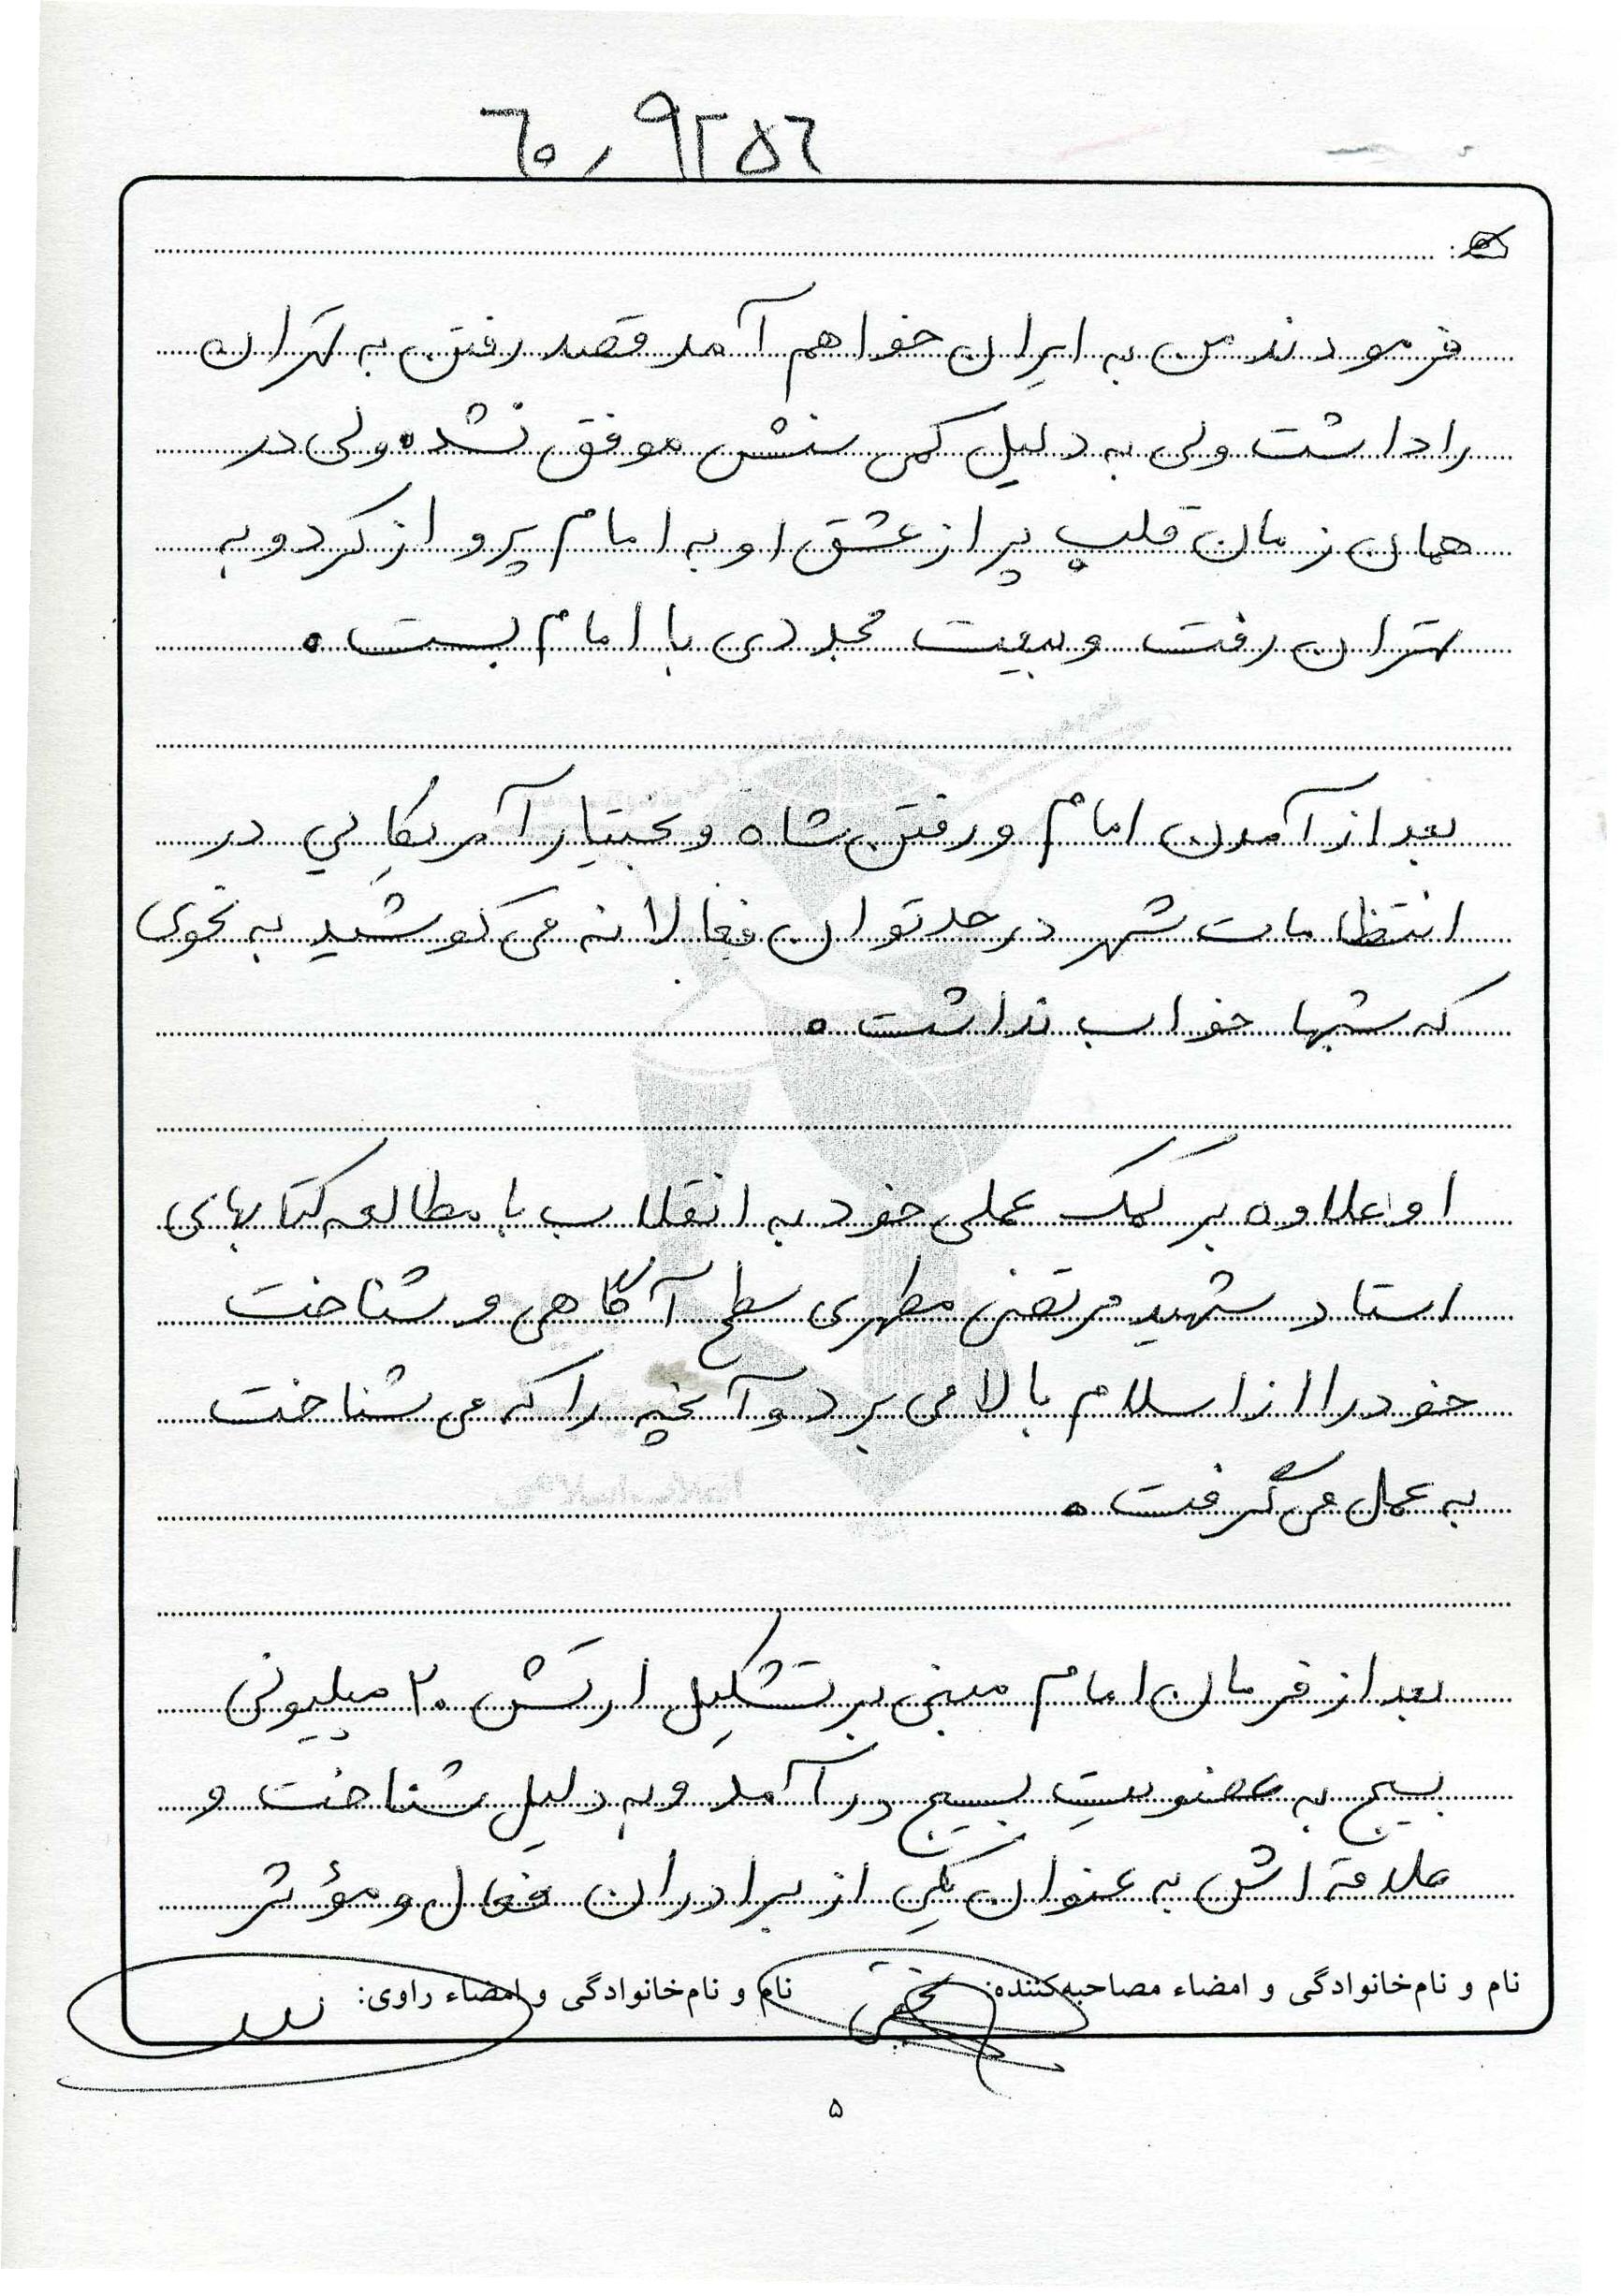 ۶۰۰۹۲۵۶
فرمودند من به ایران خواهم آمد قصد رفتن به تهران
را داشت ولی به دلیل کمی سنش موفق نشد. ولی در
همان زمان قلب پر از عشق او به امام پرواز کرد و به
تهران رفت و بیعت مجددی با امام بست.
بعد از آمدن امام و رفتن شاه و بختیار آمریکایی در
انتظامات شهر در حد توان فعالانه می کوشید به نحوی
که شبها خواب نداشت.
او علاوه بر کمک عملی خود به انقلاب با مطالعه کتابهای
استاد شهید مرتضی مطهری سطح آگاهی و شناخت
خود را از اسلام بالا می برد و آنچه را که می شناخت
به عمل می گرفت.
بعد از فرمان امام مبنی بر تشکیل ارتش ۲۰ میلیونی
بسیج به عضویت بسیج درآمد و به دلیل شناخت و
علاقه اش به عنوان یکی از برادران فعال و مؤثر
نام و نام‌خانوادگی و امضاء مصاحبه‌کننده: نام و نام‌خانوادگی و امضاء راوی:
۵